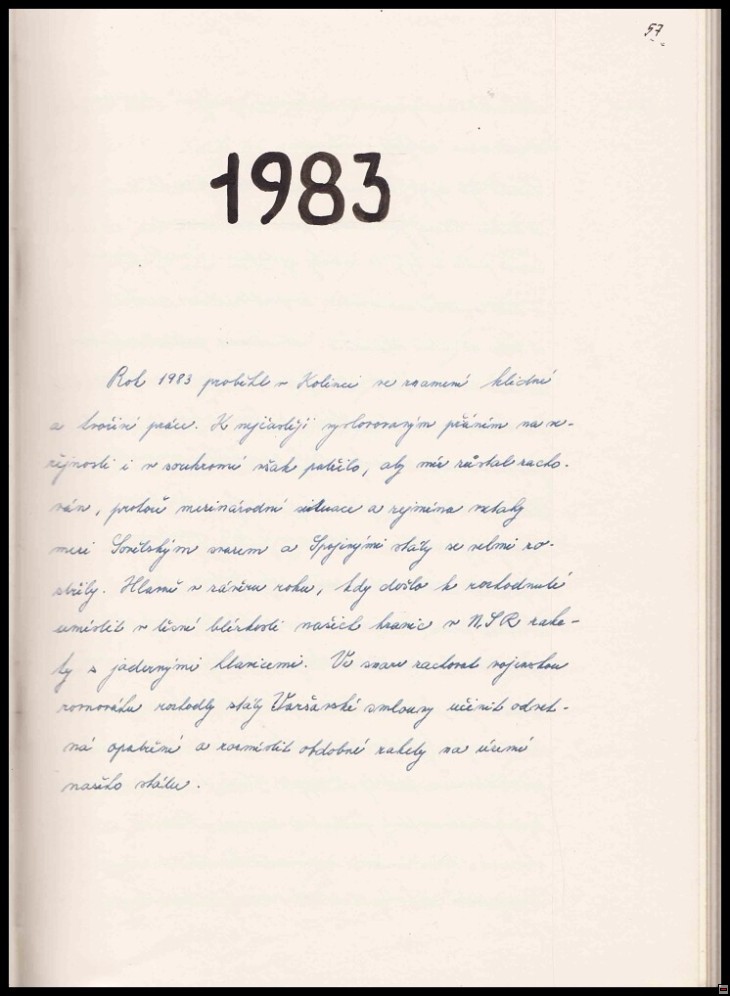 57
1983
Rok 1983 proběhl v Kolinci ve znamení klidné
a tvořivé práce. K nejčastěji vyslovovaným přáním na ve-
řejnosti i v soukromí však patřilo, aby mír zůstal zacho-
ván, protože mezinárodní situace a zejména vztahy
mezi Sovětským svazem a Spojenými státy se velmi zo-
střily. Hlavně v závěru roku, kdy došlo k rozhodnutí
umístit v těsné blízkosti našich hranic v NSR rake-
ty s jadernými hlavicemi. Ve snaze zachovat vojenskou
rovnováhu rozhodly státy Varšavské smlouvy učinit odvet-
ná opatření a rozmístit obdobné rakety na území
našeho státu.